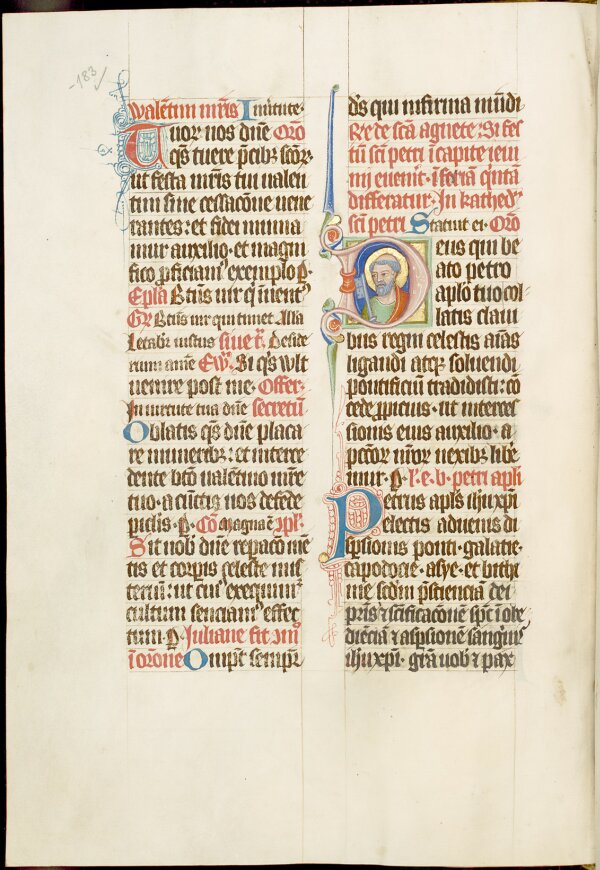 -183
walētini mr̄is In ūtute·
Tuor nos dn̄e Orō
qs̄ tuere p̄cibꝫ scōꝝ·
ut festa mr̄is tui ualen
tini sine cessacōne uene
rantes: et fidei munia
mur auxilio· et magni
fico ꝓficiam᷒ exemplo ꝑ·
Ep̄la Btūs uir q̄ inuent᷒
Gꝝ Btūs uir qui timet Alla
Letabr̄ iustus siue tr̄· Deside
rium anīe Ew̄· Si qs̄ wlt
uenire post me· Offer̄·
In uirtute tua dn̄e secretū·
Oblatis qs̄ dn̄e placa
re muneribꝫ: et interce
dente btō ualentino mr̄e
tuo· a cūctis nos defēde
piclis· ꝑ· Cō magna ē Ipł·
Sit nob̄ dn̄e repacō mē
tis et corꝑis celeste mis
teriū: ut cui᷒ exequim᷒
cultum senciam᷒ effec
tum· ꝑ· Juliane fit im̄
ī orōne Omp̄t semp̄r
ds̄ qui infirma mūdi
Re de scā agnete: Si fes
tū scī petri ī capite ieiu
nij euen̄it· ī feria q̄nta
differatur· In kathed᷑
scī petri Statuit ei· Orō
Deus qui be
ato petro
aplō tuo col
latis claui
bus regni celestis aīas
ligandi atqꝫ soluendi
pontificiū tradidisti: cō
cede ꝓpicius· ut interces
sionis eius auxilio· a
pctōꝝ nr̄oꝝ nexibꝫ libe
mur· ꝑ· l'· e· b· petri apłi
Petrus apłs ihūxp̄i
electis aduenis di
spersionis ponti· galacie·
capodocie· asye· et bithi
nie scdm̄ p̄scienciā dei
pr̄is ⁊ scīficacōnē sp̄c ī obe
dienciā ⁊ aspsionē sanguīs
ihūxp̄i· grā uob̄ ⁊ pax